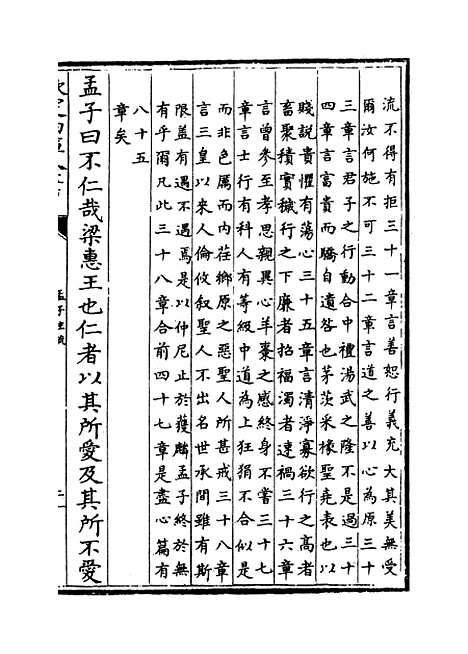 流不得有拒三十一章言善恕行義充大其美無受
爾汝何施不可三十二章言道之善以心為原三十
三章言君子之行動合中禮湯武之隆不是過三十
四章言富貴而驕自遺咎也茅茨采椽聖堯表也以
賤説貴懼有蕩心三十五章言清淨寡欲行之高者
畜聚積實穢行之下廉者招福濁者速禍三十六章
言曾參至孝思親異心羊棗之感終身不嘗三十七
章言士行有科人有等級中道為上狂狷不合似是
而非色厲而内荏鄉原之惡聖人所甚戒三十八章
言三皇以來人倫攸叙聖人不出名世承間雖有斯
限蓋有遇不遇焉是以仲尼止於獲麟孟子終於無
有乎爾凡此三十八章合前四十七章是盡心篇有
八十五
章矣
孟子曰不仁哉梁惠王也仁者以其所愛及其所不愛
孟子注疏